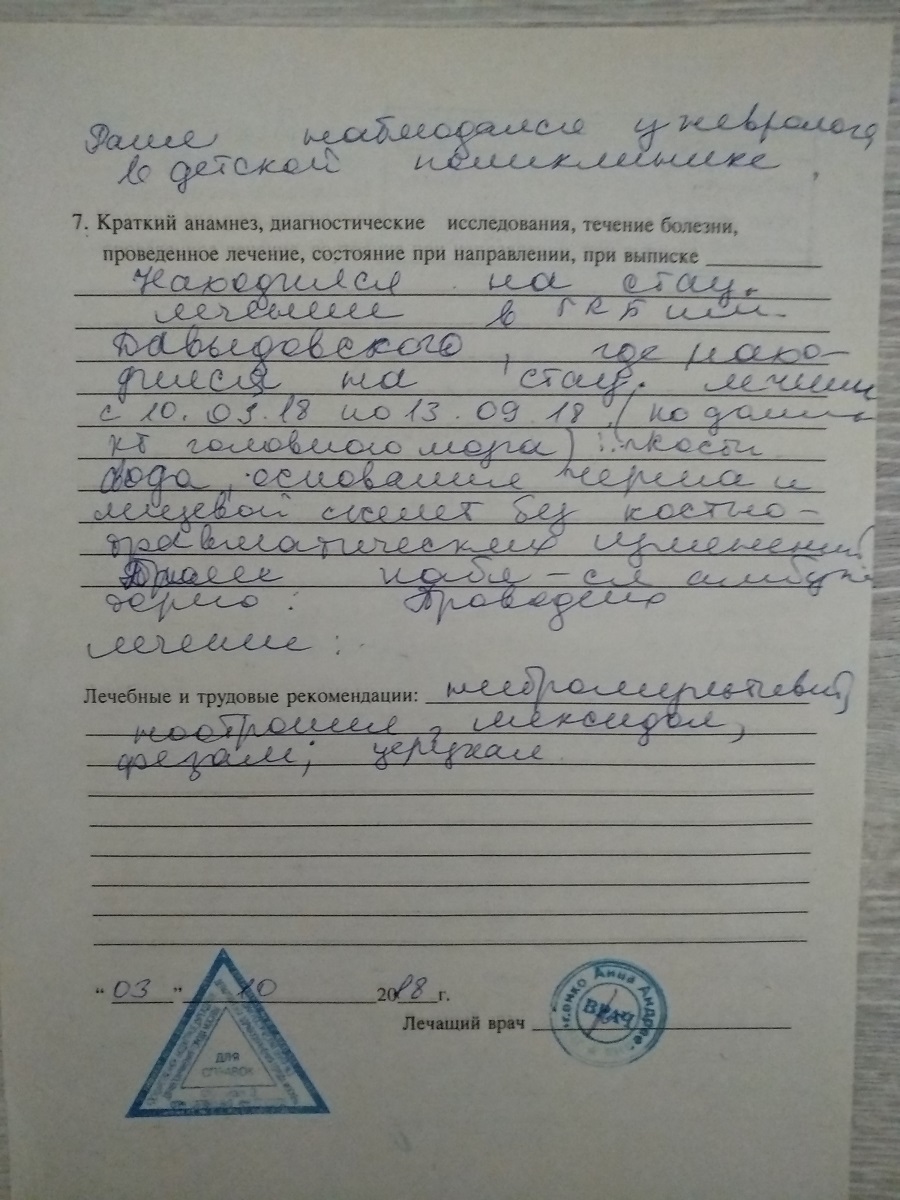 Ранее наблюдался у невролога
в детской поликлинике,
7. Краткий анамнез, диагностические исследования, течение болезни,
проведенное лечение, состояние при направлении, при выписке
Находился на стац.
лечение в ГКБ им.
Давыдовского, где нахо-
дился на стац. лечении
с 10.09.18 по 13.09.18 (по данным
КТ головного мозга) :
свода, основания черепа и
лицевой скелет без костно-
травматических изменений
Далее набл-ся амбула
торно: Проведено
лечение:
Лечебные и трудовые рекомендации: нейромультивит,
ноотропил, мексидол,
фезам,
"03" 10 2018 г.
Лечащий врач
Анна Андрее
ВРАЧ
ДЛЯ
СПРАВОК